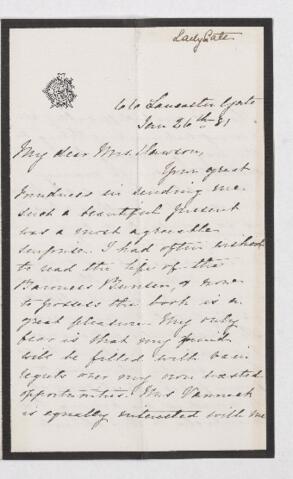 Lady Cate
66 Lancaster Gate
Jan 26th 81
My dear Mrs.
Your great
kindness in sending me
such a beautiful present
was a most agreeable
surprise. I had often wished
to read the life of the
Baroness Bunsen, & now
to possess the book is a
great pleasure. My only
fear is that my mind
will be filled with vain
regrets over my own wasted
opportunities. Mrs
is equally interested with me